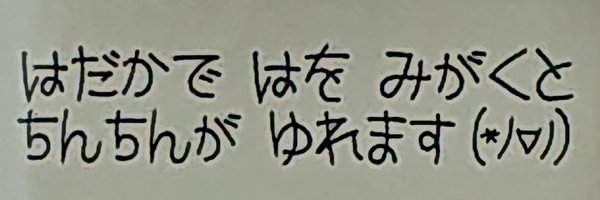 はだかで はを みがくと
ちんちんが ゆれます (*ﾉ▽ﾉ)